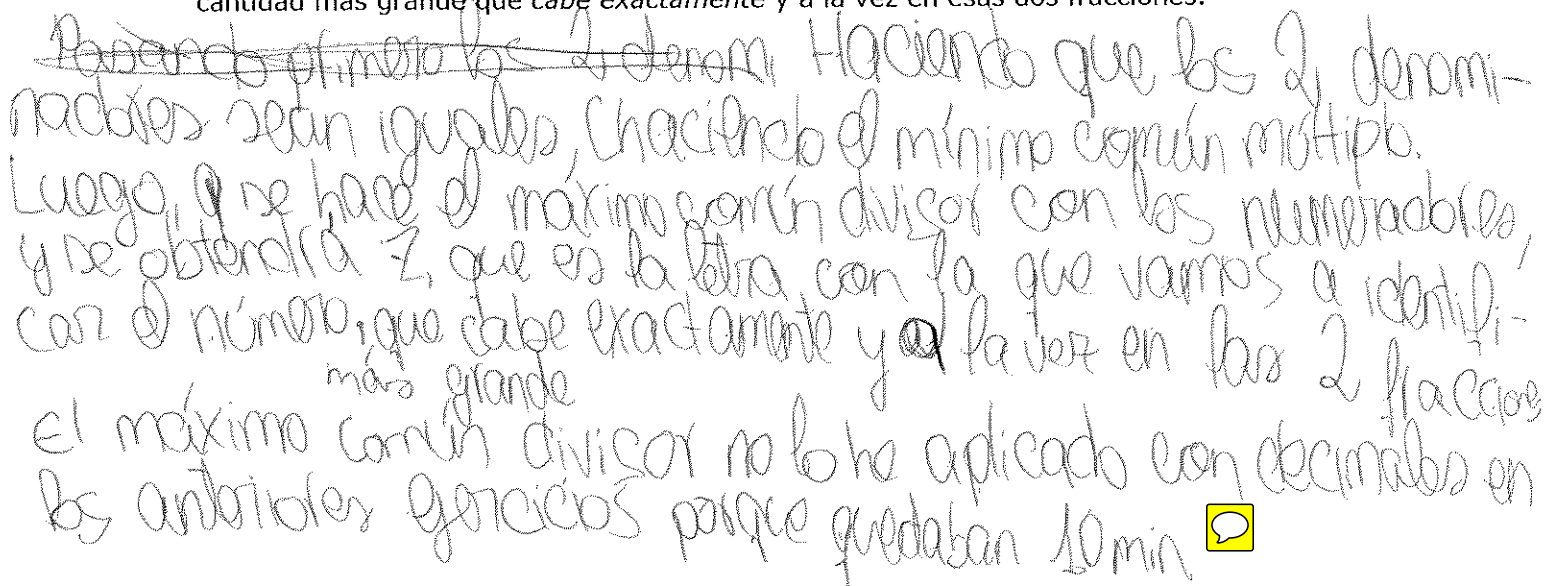 cantidad más grande que cabe exactamente y a la vez en esas dos fracciones.
Pasando primero los 2 denom, Haciendo que los 2 denomi-
nadores sean iguales, (haciendo el mínimo común múltiplo.
Luego, se hace el máximo común divisor con los numeradores,
y se obtendrá Z, que es la letra con la que vamos a identifi-
car el número, que cabe exactamente y a la vez en las 2 fracciones
más grande
El máximo común divisor no lo he aplicado con decimales en
los anteriores ejercicios porque quedaban 10 min